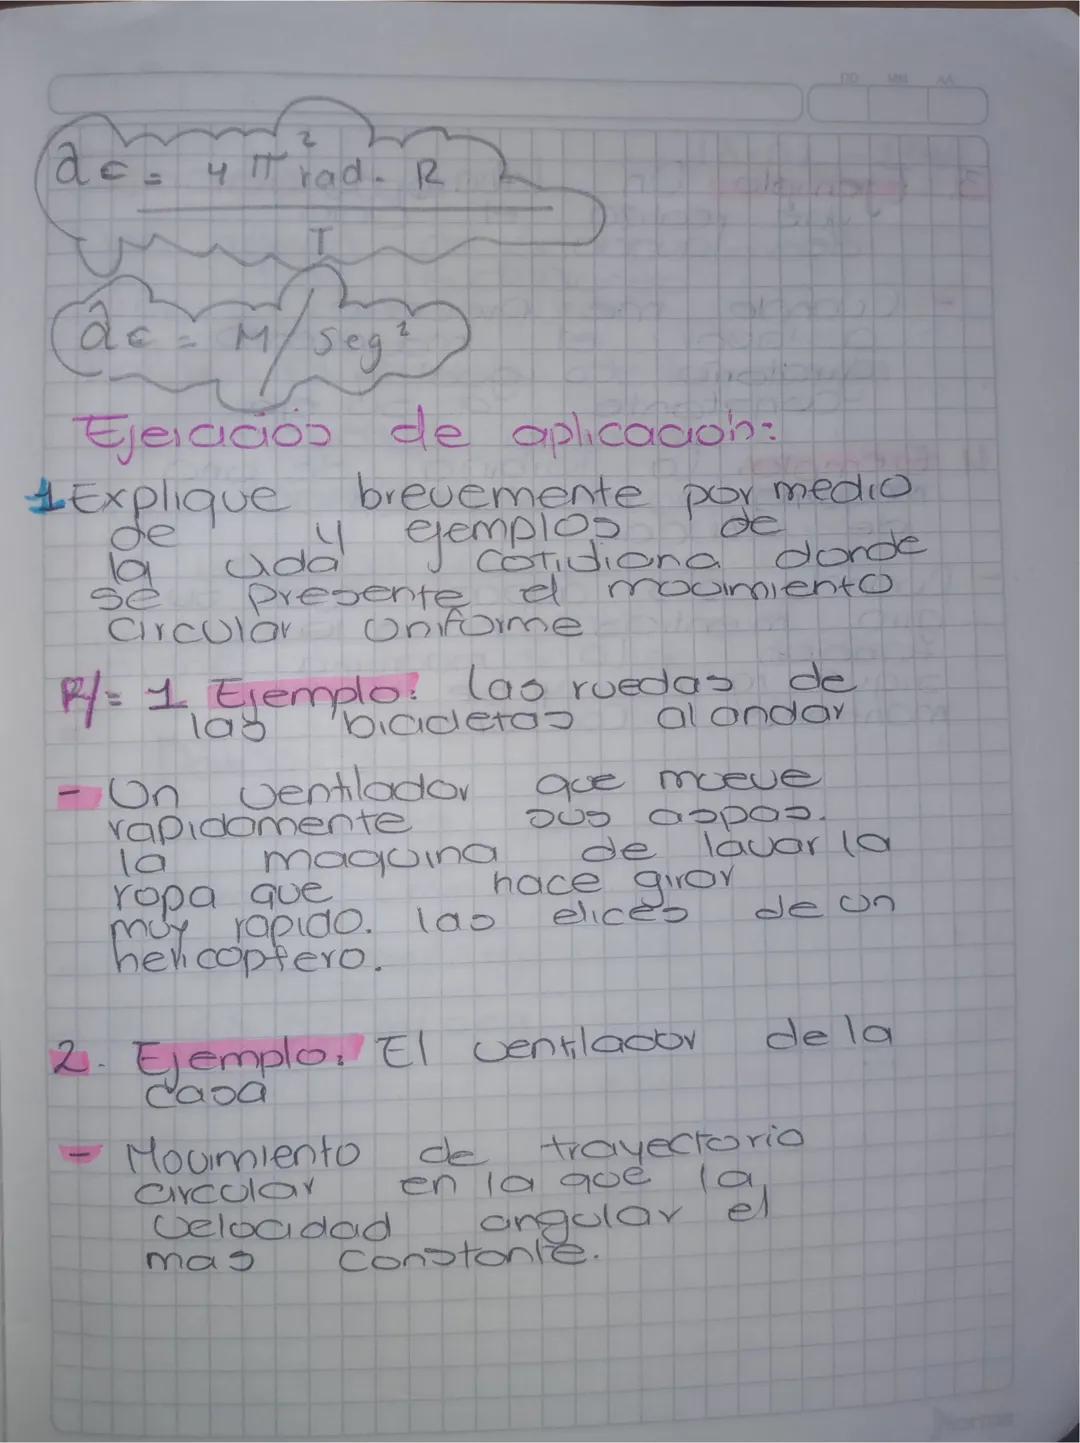 DD MM AA
ac = 4 π² rad. R
T
ac = M/seg²
Ejercicios de aplicación:
1 Explique brevemente por medio
de y ejemplos de
la vida cotidiana donde
se presente el movimiento
circular uniforme
R/= 1 Ejemplo: las ruedas de
las bicicletas al andar
- Un ventilador que mueve
rapidamente sus aspas.
la maquina de lavar la
ropa que hace girar
muy rapido. las elices de un
helicoptero.
2. Ejemplo: El ventilador de la
casa
- Movimiento de trayectorio
circular en la que la
velocidad angular el
mas constante.
Norma